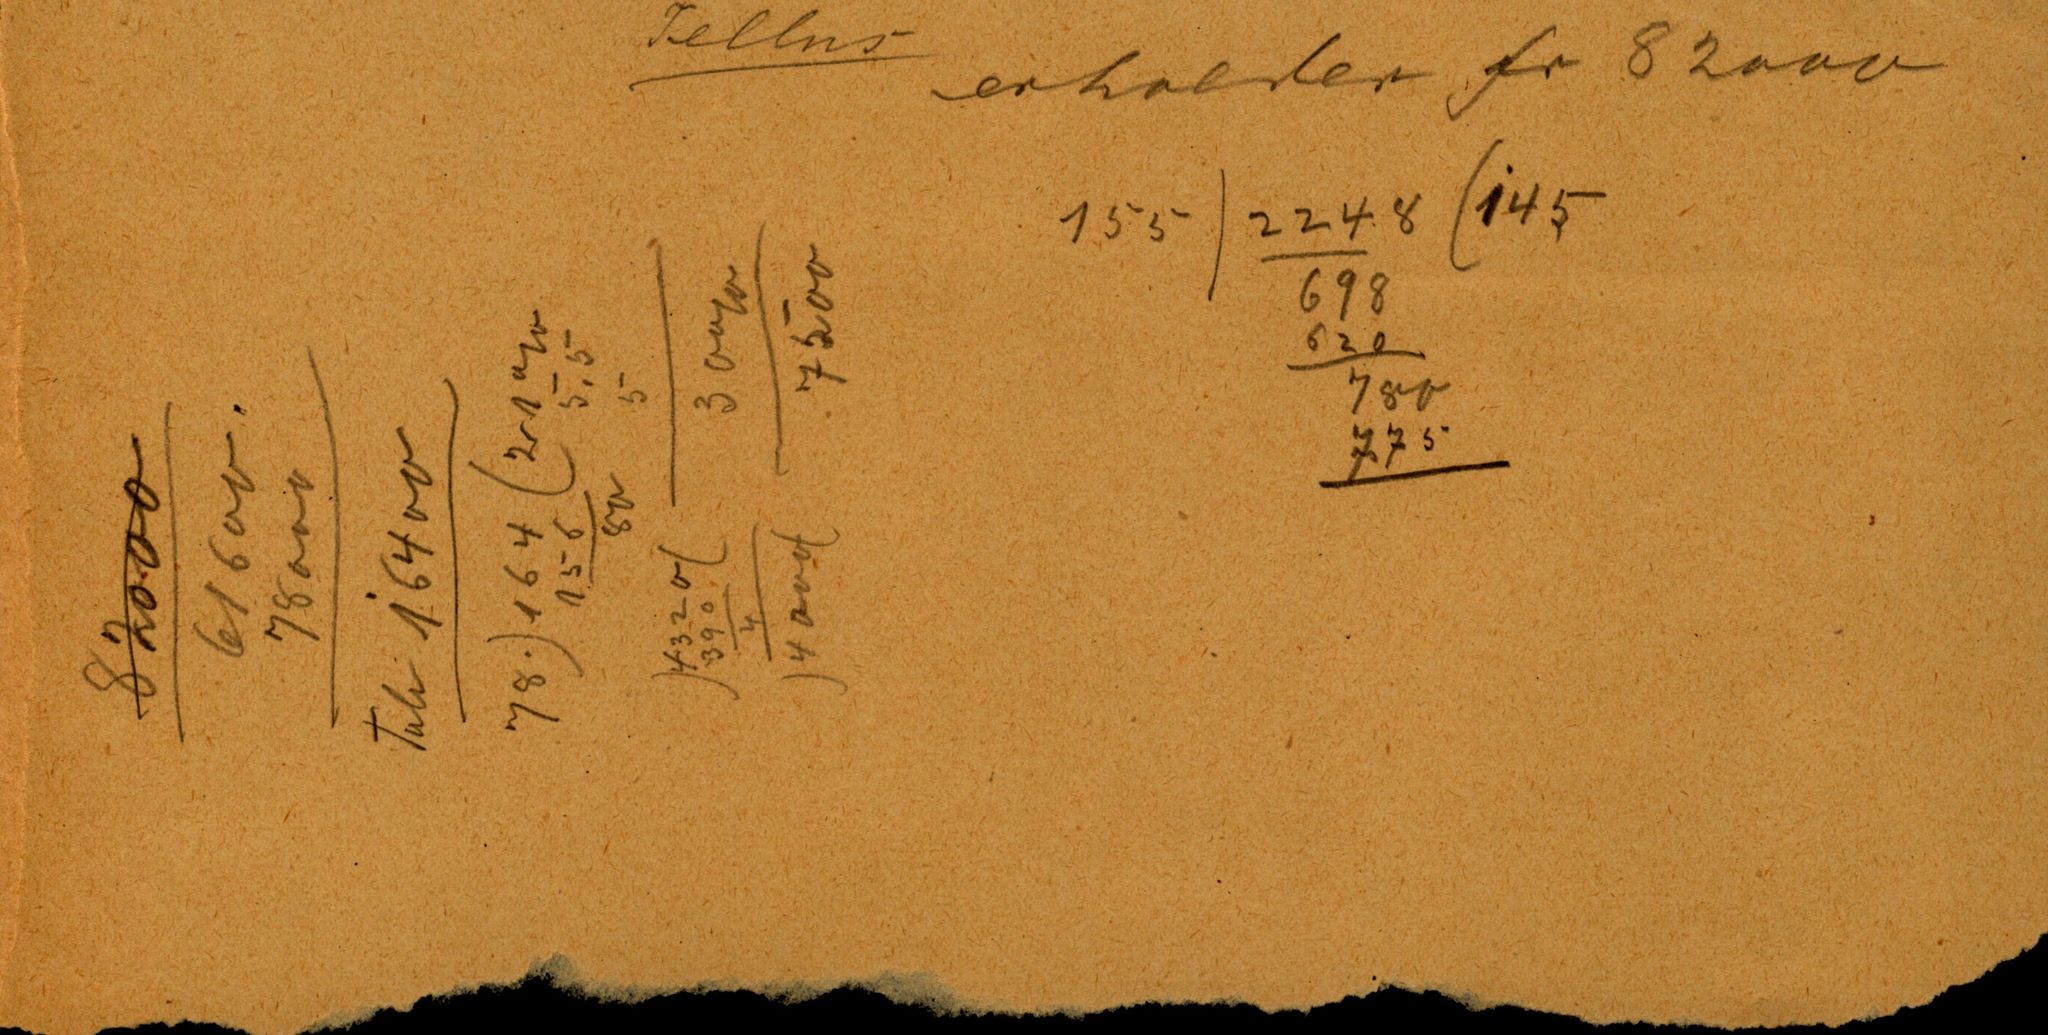 Tellus
erholder fr 82000
155 ) 2248 ( 145
698
620
780
775
82000
61600.
78000
16400
78.) 164 ( 21
156
5.5
80
5
4320
390
4
4000
7500